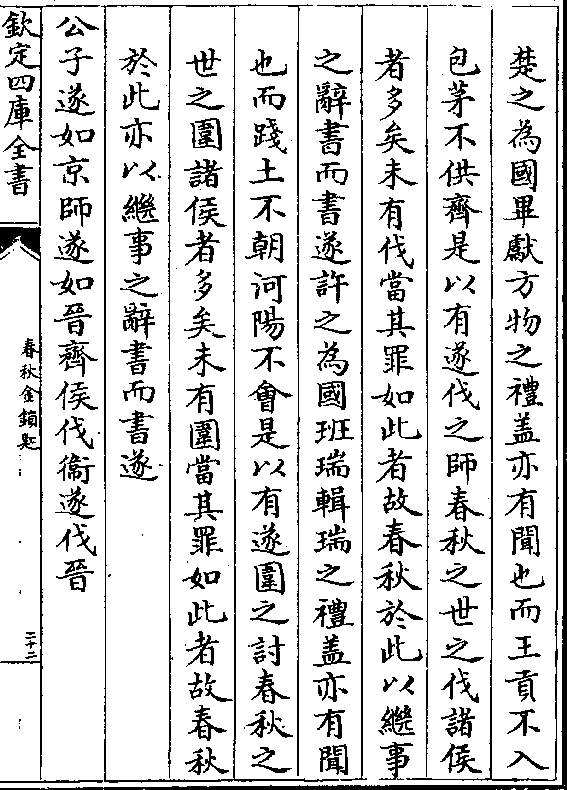 楚之為國畢獻方物之禮盖亦有聞也而王貢不入
包茅不供齊是以有遂伐之師春秋之世之伐諸侯
者多矣未有伐當其罪如此者故春秋於此以繼事
之辭書而書遂許之為國班瑞輯瑞之禮盖亦有聞
也而踐土不朝河陽不會是以有遂圍之討春秋之
世之圍諸侯者多矣未有圍當其罪如此者故春秋
於此亦以繼事之辭書而書遂
公子遂如京師遂如晉齊侯伐衞遂伐晉
欽定四庫全書
春秋金鎖匙
二十二